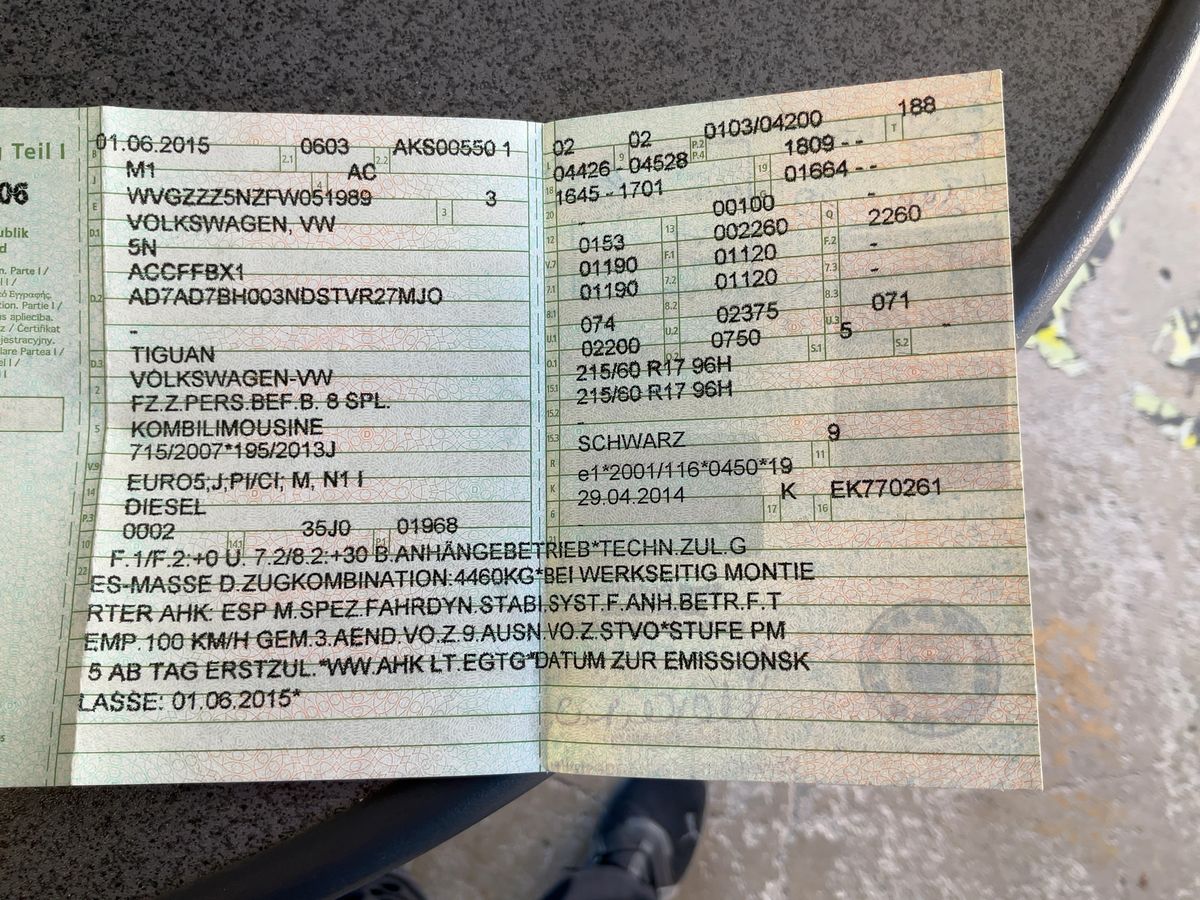 g Teil I
06
publik
d
n. Parte I /
Εγγραφής.
tion. Partie I /
as apliecība.
z / Certifikat
ejestracyjny.
lare Partea I /
B 01.06.2015 2.1 0603 2.2 AKS00550 1
J M1 4 AC
E WVGZZZ5NZFW051989 3 3
D.1 VOLKSWAGEN, VW
5N
D.2 ACCFFBX1
AD7AD7BH003NDSTVR27MJO
-
D.3 TIGUAN
2 VOLKSWAGEN-VW
5 FZ.Z.PERS.BEF.B. 8 SPL.
KOMBILIMOUSINE
V.9 715/2007*195/2013J
14 EURO5;J;PI/CI; M, N1 I
P.3 DIESEL
10 0002 14.1 35J0 P.1 01968
L 02 9 02 P.2 P.4 0103/04200 T 188
18 04426 - 04528 19 1809 - -
20 1645 - 1701 G 01664 - -
12 - 13 00100 Q -
V.7 0153 F.1 002260 F.2 2260
7.1 01190 7.2 01120 7.3 -
8.1 01190 8.2 01120 8.3 -
U.1 074 U.2 02375 U.3 071
O.1 02200 0750 S.1 5 S.2 -
15.1 215/60 R17 96H
15.2 215/60 R17 96H
15.3 -
R SCHWARZ 11 9
K e1*2001/116*0450*19
6 29.04.2014 17 K 16 EK770261
21
22 F.1/F.2:+0 U. 7.2/8.2:+30 B.ANHÄNGEBETRIEB*TECHN.ZUL.G
ES-MASSE D.ZUGKOMBINATION:4460KG*BEI WERKSEITIG MONTIE
RTER AHK: ESP M.SPEZ.FAHRDYN.STABI.SYST.F.ANH.BETR.F.T
EMP.100 KM/H GEM.3.AEND.VO.Z.9.AUSN.VO.Z.STVO*STUFE PM
5 AB TAG ERSTZUL.*WW.AHK LT.EGTG*DATUM ZUR EMISSIONSK
LASSE: 01.06.2015*